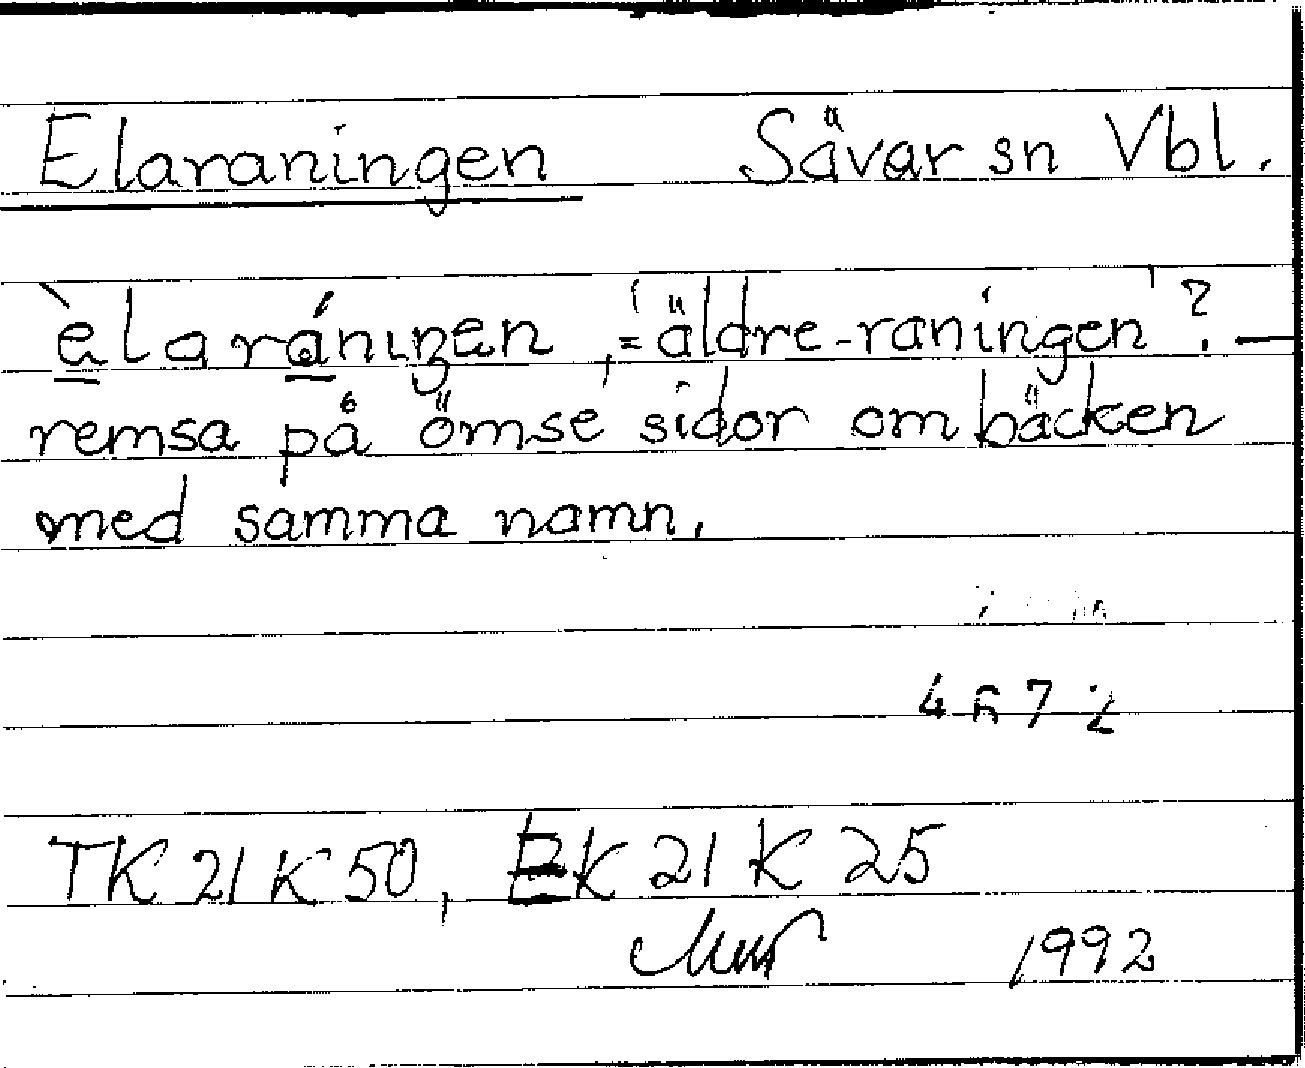 Elaraningen Sävar sn Vbl.
`elaráningen, = 'äldre-raningen'? —
remsa på ömse sidor om bäcken
med samma namn.
TK 21 K 50, EK 21 K 25
1992